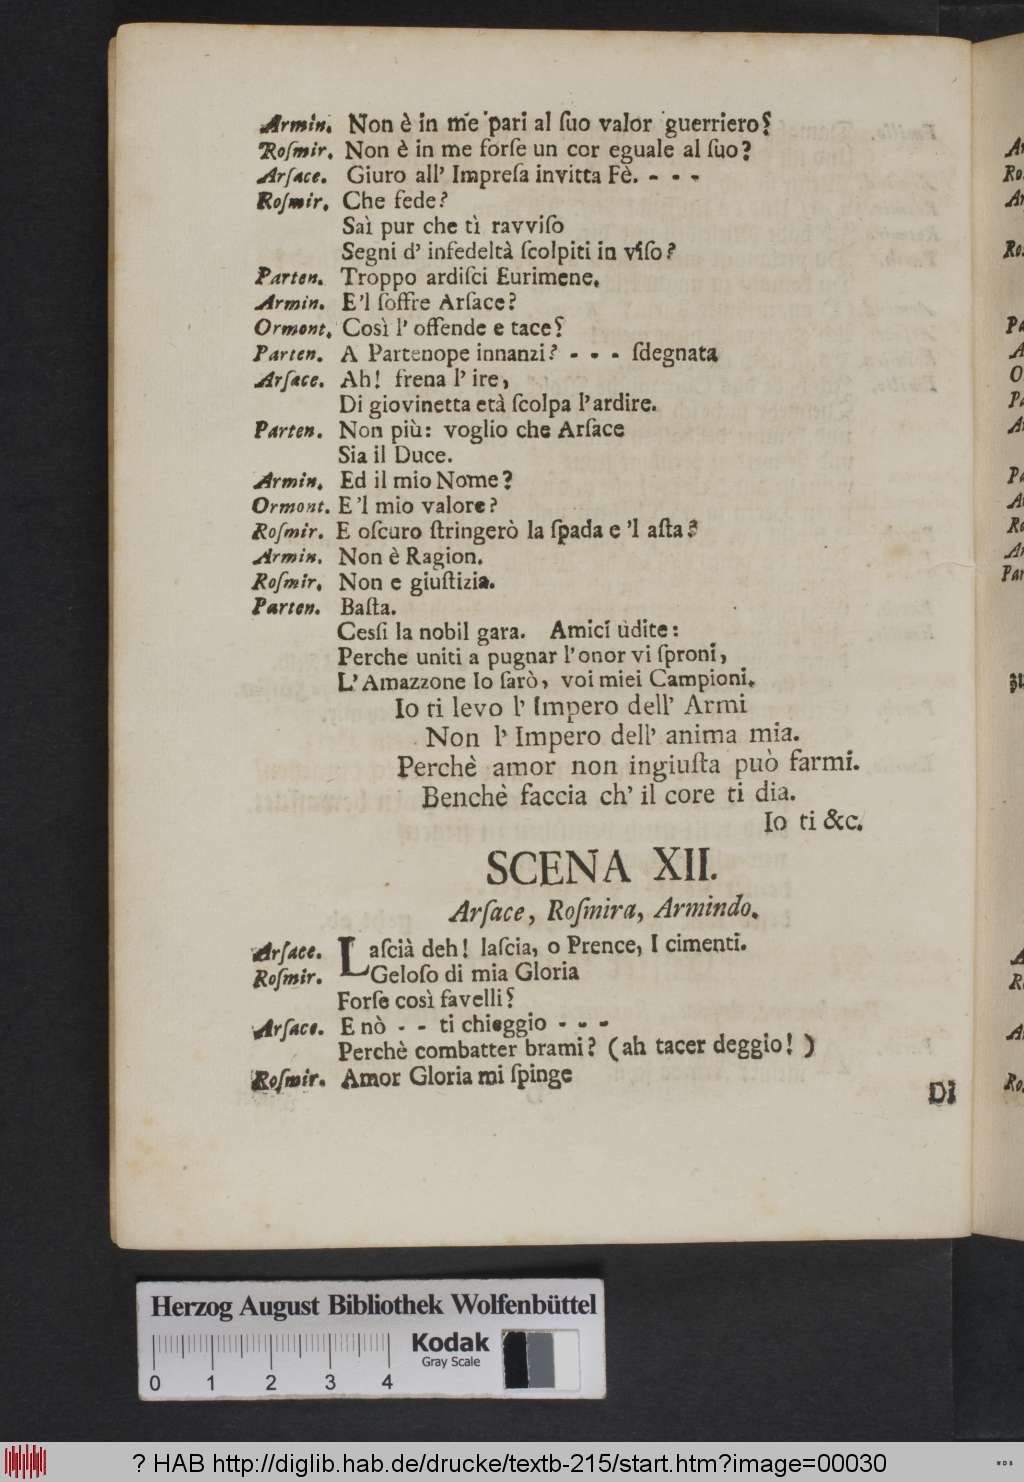 Armin. Non è in me pari al ſuo valor guerriero?
Roſmir. Non è in me forſe un cor eguale al ſuo?
Arſace. Giuro all' Impreſa invitta Fè. - - -
Roſmir. Che fede?
Saì pur che tì ravviſo
Segni d' infedeltà ſcolpiti in viſo?
Parten. Troppo ardiſci Eurimene.
Armin. E'l ſoffre Arſace?
Ormont. Così l' offende e tace?
Parten. A Partenope innanzi? - - - ſdegnata
Arſace. Ah! frena l' ire,
Di giovinetta età ſcolpa l'ardire.
Parten. Non più: voglio che Arſace
Sia il Duce.
Armin. Ed il mio Nome?
Ormont. E'l mio valore?
Roſmir. E oſcuro ſtringerò la ſpada e 'l aſta?
Armin. Non è Ragion.
Roſmir. Non e giuſtizia.
Parten. Baſta.
Ceſſi la nobil gara. Amici udite:
Perche uniti a pugnar l'onor vi ſproni,
L'Amazzone Io ſarò, voi miei Campioni.
Io ti levo l' Impero dell' Armi
Non l' Impero dell' anima mia.
Perchè amor non ingiuſta può farmi.
Benchè faccia ch' il core ti dia.
Io ti &c.
SCENA XII.
Arſace, Roſmira, Armindo.
Arſace. Laſcià deh! laſcia, o Prence, I cimenti.
Roſmir. Geloſo di mia Gloria
Forſe così favelli?
Arſace. E nò - - ti chieggio - - -
Perchè combatter brami? (ah tacer deggio! )
Roſmir. Amor Gloria mi ſpinge
Di
Herzog August Bibliothek Wolfenbüttel
Kodak
Gray Scale
0 1 2 3 4
? HAB http://diglib.hab.de/drucke/textb-215/start.htm?image=00030